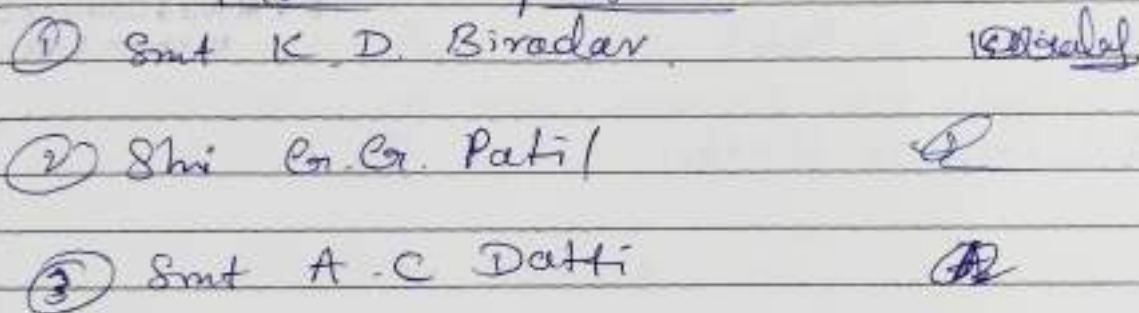 ① Smt K. D. Biradar
② Shi G. G. Patil
③ Smt A. C Datti